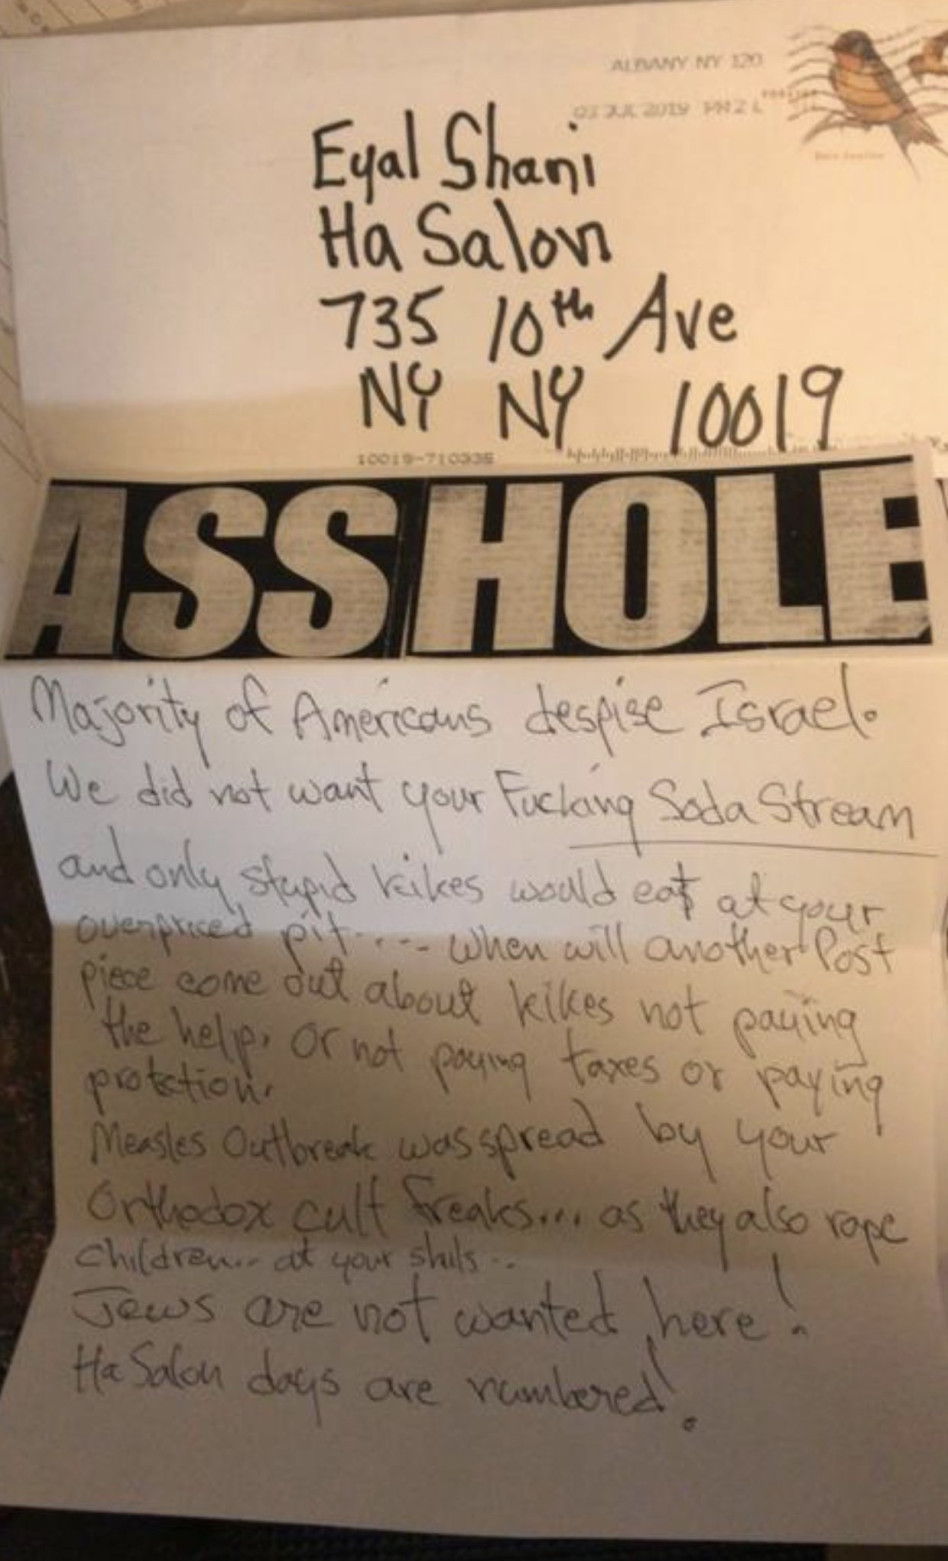 ALBANY NY 120
03 JUL 2019 PM 2 L
Eyal Shani
Ha Salon
735 10th Ave
NY NY 10019
10019-710335
ASSHOLE
Majority of Americans despise Israel.
We did not want your Fucking Soda Stream
and only stupid kikes would eat at your
overpriced pit.... when will another Post
piece come out about kikes not paying
the help, or not paying taxes or paying
protction.
Measles Outbreak was spread by your
Orthodox cult freaks... as they also rape
children... at your shuls..
Jews are not wanted here!
Ha Salon days are numbered!